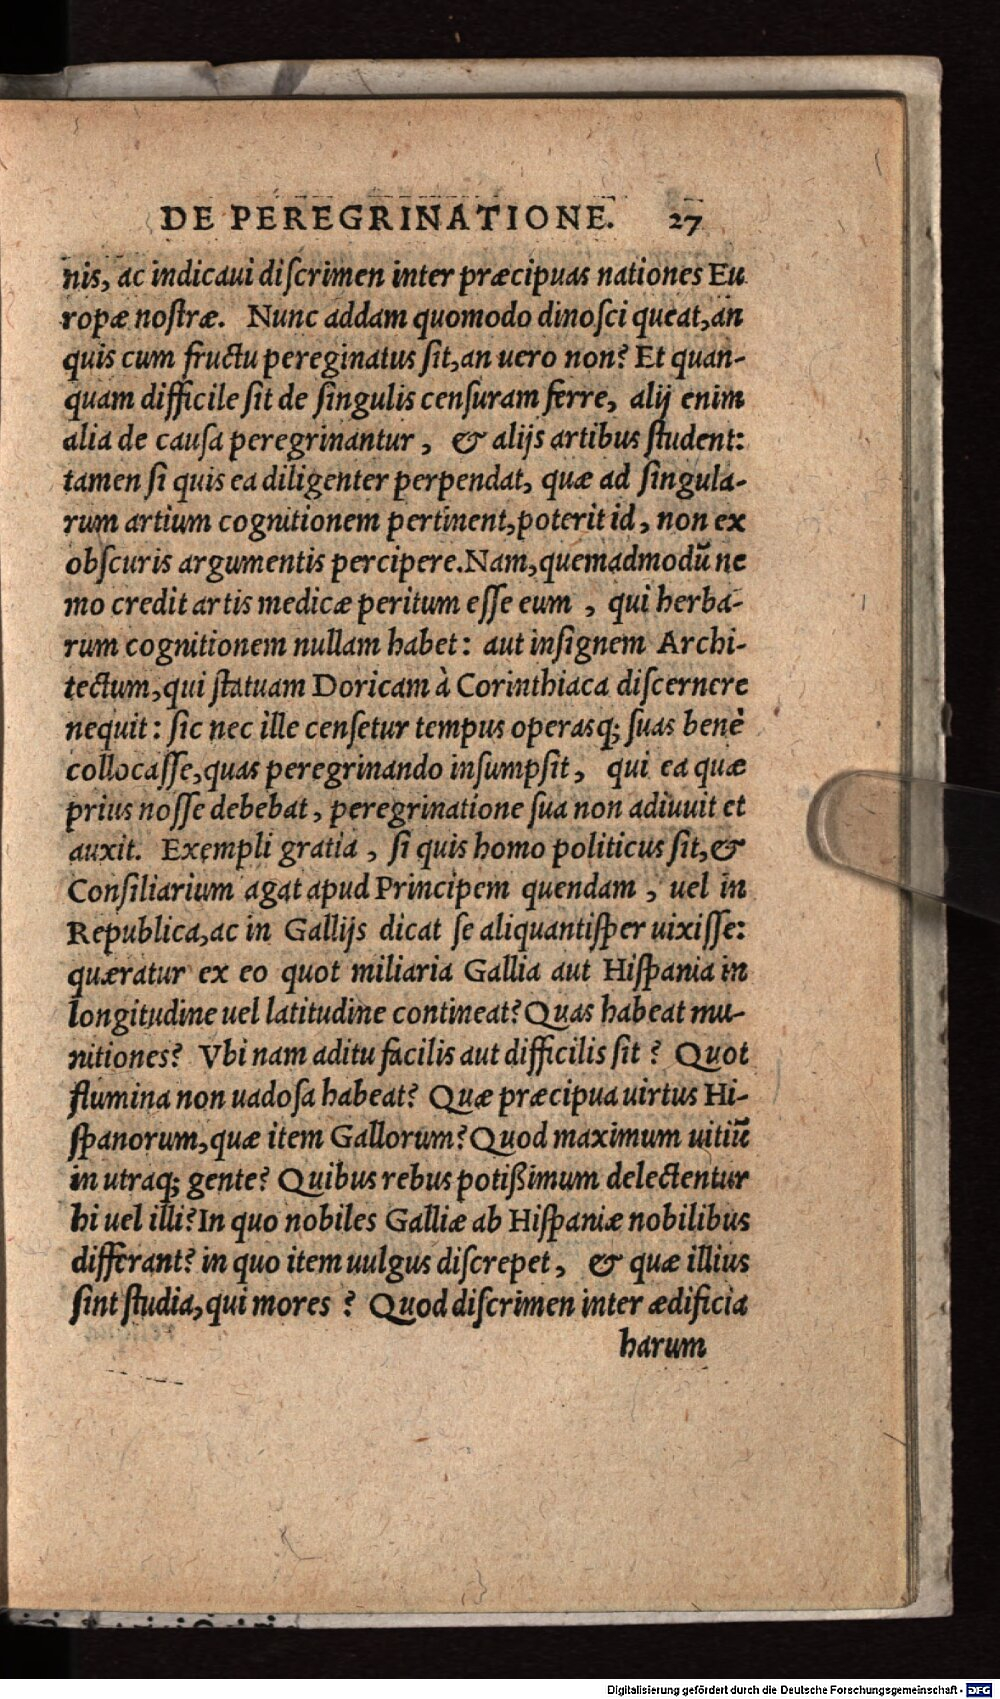 DE PEREGRINATIONE. 27
nis, ac indicaui discrimen inter præcipuas nationes Eu
ropæ nostræ. Nunc addam quomodo dinosci queat, an
quis cum fructu pereginatus sit, an uero non? Et quan-
quam difficile sit de singulis censuram ferre, alij enim
alia de causa peregrinantur, & alijs artibus student:
tamen si quis ea diligenter perpendat, quæ ad singula-
rum artium cognitionem pertinent, poterit id, non ex
obscuris argumentis percipere. Nam, quemadmodũ ne
mo credit artis medicæ peritum esse eum, qui herba-
rum cognitionem nullam habet: aut insignem Archi-
tectum, qui statuam Doricam à Corinthiaca discernere
nequit: sic nec ille censetur tempus operasq; suas benè
collocasse, quas peregrinando insumpsit, qui ea quæ
prius nosse debebat, peregrinatione sua non adiuuit et
auxit. Exempli gratia, si quis homo politicus sit, &
Consiliarium agat apud Principem quendam, uel in
Republica, ac in Gallijs dicat se aliquantisper uixisse:
quæratur ex eo quot miliaria Gallia aut Hispania in
longitudine uel latitudine contineat? Quas habeat mu-
nitiones? Vbi nam aditu facilis aut difficilis sit? Quot
flumina non uadosa habeat? Quæ præcipua uirtus Hi-
spanorum, quæ item Gallorum? Quod maximum uitiũ
in utraq; gente? Quibus rebus potißimum delectentur
hi uel illi? In quo nobiles Galliæ ab Hispaniæ nobilibus
differant? in quo item uulgus discrepet, & quæ illius
sint studia, qui mores? Quod discrimen inter ædificia
harum
Digitalisierung gefördert durch die Deutsche Forschungsgemeinschaft - DFG